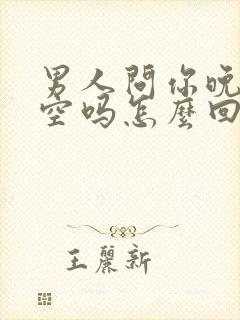 男人問你晚
空吗怎麼回
王麗新